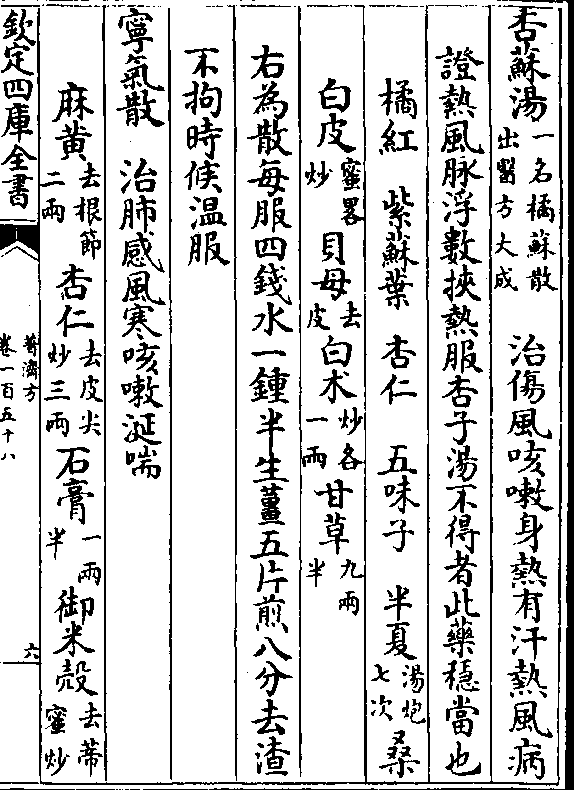 杏蘇湯一名橘蘇散出醫方大成 治傷風咳嗽身熱有汗熱風病
證熱風脉浮數挾熱服杏子湯不得者此藥穩當也
橘紅 紫蘇葉 杏仁 五味子 半夏湯炮七次 桑
白皮蜜畧炒 貝母去皮 白术炒各一兩 甘草九兩半
右為散每服四錢水一鍾半生薑五片煎八分去渣
不拘時候温服
寧氣散 治肺感風寒咳嗽涎喘
麻黄去根節二兩 杏仁去皮尖炒三兩 石膏一兩半 御米殻去蒂蜜炒
欽定四庫全書
普濟方
卷一百五十八
六